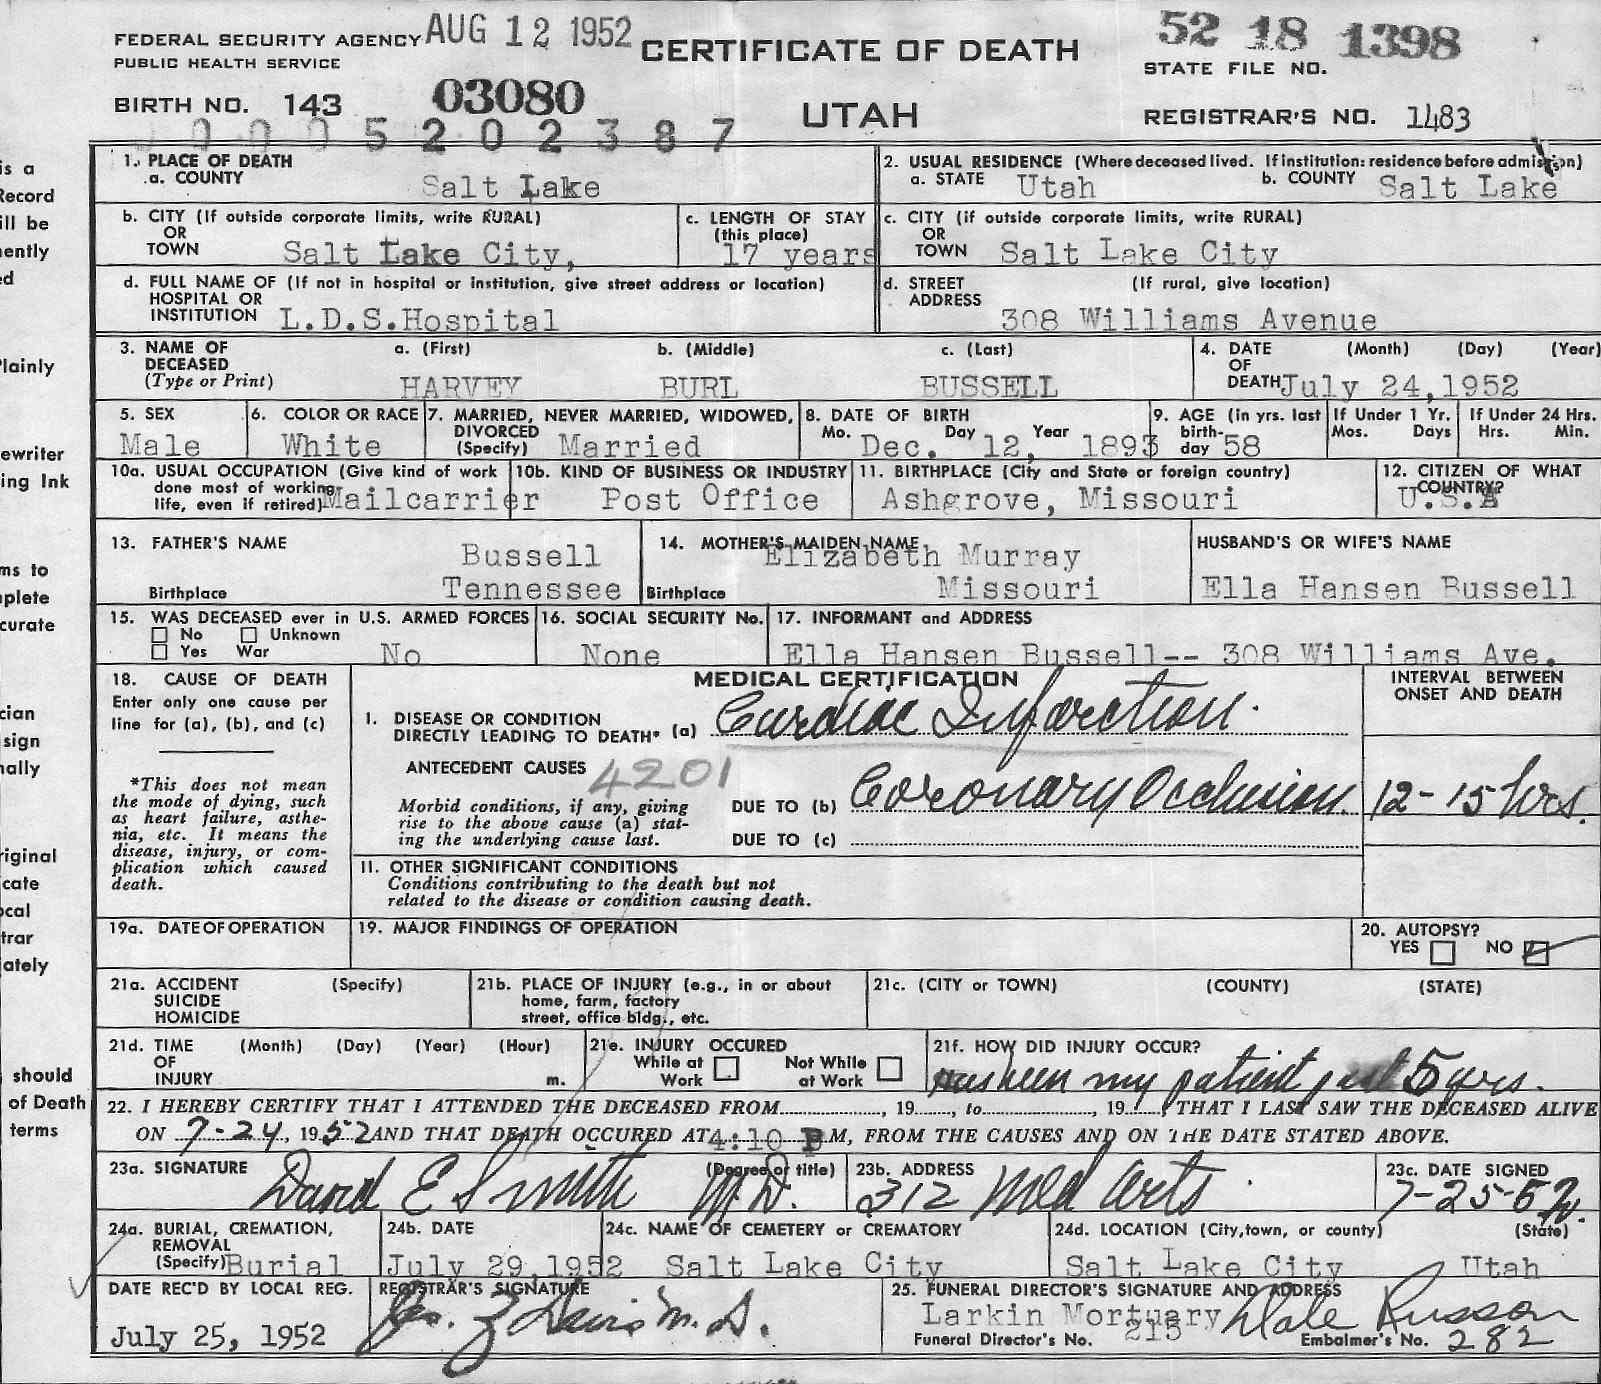 FEDERAL SECURITY AGENCY AUG 12 1952 CERTIFICATE OF DEATH 52 18 1398
PUBLIC HEALTH SERVICE STATE FILE NO.
BIRTH NO. 143 03080 UTAH REGISTRAR'S NO. 1483
0005202387
1. PLACE OF DEATH
a. COUNTY Salt Lake
2. USUAL RESIDENCE (Where deceased lived. If institution: residence before admission)
a. STATE Utah b. COUNTY Salt Lake
b. CITY (If outside corporate limits, write RURAL)
OR
TOWN Salt Lake City,
c. LENGTH OF STAY
(this place)
17 years
c. CITY (if outside corporate limits, write RURAL)
OR
TOWN Salt Lake City
d. FULL NAME OF (If not in hospital or institution, give street address or location)
HOSPITAL OR
INSTITUTION L.D.S.Hospital
d. STREET (If rural, give location)
ADDRESS
308 Williams Avenue
3. NAME OF a. (First) b. (Middle) c. (Last)
DECEASED
(Type or Print) HARVEY BURL BUSSELL
4. DATE (Month) (Day) (Year)
OF
DEATH July 24,1952
5. SEX
Male
6. COLOR OR RACE
White
7. MARRIED, NEVER MARRIED, WIDOWED,
DIVORCED
(Specify) Married
8. DATE OF BIRTH
Mo. Day Year
Dec. 12, 1893
9. AGE (in yrs. last
birth-
day 58
If Under 1 Yr.
Mos. Days
If Under 24 Hrs.
Hrs. Min.
10a. USUAL OCCUPATION (Give kind of work
done most of working
life, even if retired) Mailcarrier
10b. KIND OF BUSINESS OR INDUSTRY
Post Office
11. BIRTHPLACE (City and State or foreign country)
Ashgrove, Missouri
12. CITIZEN OF WHAT
COUNTRY?
U.S.A
13. FATHER'S NAME
Bussell
Birthplace Tennessee
14. MOTHER'S MAIDEN NAME
Elizabeth Murray
Birthplace Missouri
HUSBAND'S OR WIFE'S NAME
Ella Hansen Bussell
15. WAS DECEASED ever in U.S. ARMED FORCES
No Unknown
Yes War No
16. SOCIAL SECURITY No.
None
17. INFORMANT and ADDRESS
Ella Hansen Bussell-- 308 Williams Ave.
18. CAUSE OF DEATH
Enter only one cause per
line for (a), (b), and (c)
*This does not mean
the mode of dying, such
as heart failure, asthe-
nia, etc. It means the
disease, injury, or com-
plication which caused
death.
MEDICAL CERTIFICATION
INTERVAL BETWEEN
ONSET AND DEATH
I. DISEASE OR CONDITION
DIRECTLY LEADING TO DEATH* (a) Cardiac Infarction.
ANTECEDENT CAUSES 4201
Morbid conditions, if any, giving
rise to the above cause (a) stat-
ing the underlying cause last.
DUE TO (b) Coronary Occlusion. 12-15 hrs.
DUE TO (c)
II. OTHER SIGNIFICANT CONDITIONS
Conditions contributing to the death but not
related to the disease or condition causing death.
19a. DATE OF OPERATION
19. MAJOR FINDINGS OF OPERATION
20. AUTOPSY?
YES NO
21a. ACCIDENT (Specify)
SUICIDE
HOMICIDE
21b. PLACE OF INJURY (e.g., in or about
home, farm, factory
street, office bldg., etc.
21c. (CITY or TOWN) (COUNTY) (STATE)
21d. TIME (Month) (Day) (Year) (Hour)
OF
INJURY m.
21e. INJURY OCCURED
While at Not While
Work at Work
21f. HOW DID INJURY OCCUR?
Has been my patient past 5 yrs.
22. I HEREBY CERTIFY THAT I ATTENDED THE DECEASED FROM , 19 , to , 19 , THAT I LAST SAW THE DECEASED ALIVE
ON 7-24, 1952 AND THAT DEATH OCCURED AT 4:10 P.M, FROM THE CAUSES AND ON THE DATE STATED ABOVE.
23a. SIGNATURE (Degree or title)
David E Smith M.D.
23b. ADDRESS
312 Med Arts
23c. DATE SIGNED
7-25-52
24a. BURIAL, CREMATION,
REMOVAL
(Specify) Burial
24b. DATE
July 29,1952
24c. NAME OF CEMETERY or CREMATORY
Salt Lake City
24d. LOCATION (City,town, or county) (State)
Salt Lake City Utah
DATE REC'D BY LOCAL REG.
July 25, 1952
REGISTRAR'S SIGNATURE
Davis M.D.
25. FUNERAL DIRECTOR'S SIGNATURE AND ADDRESS
Larkin Mortuary Dale Russon
Funeral Director's No. 215 Embalmer's No. 282
is a
Record
ill be
nently
ed
Plainly
ewriter
ing Ink
ms to
mplete
curate
cian
sign
nally
riginal
cate
ocal
trar
ately
should
of Death
terms